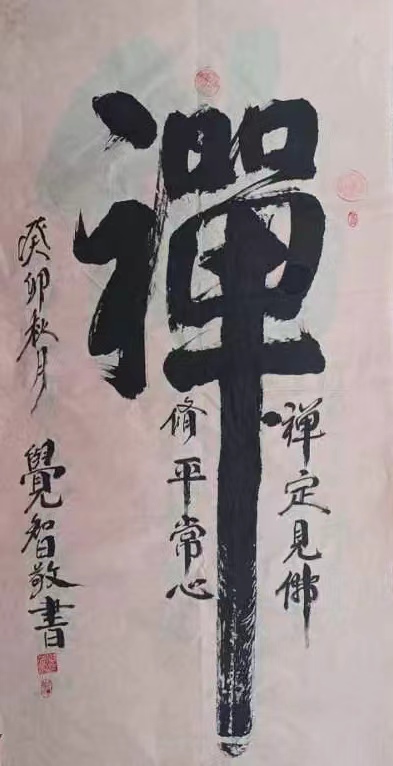 禪
禅定見佛
脩平常心
癸卯秋月
覺智敬書